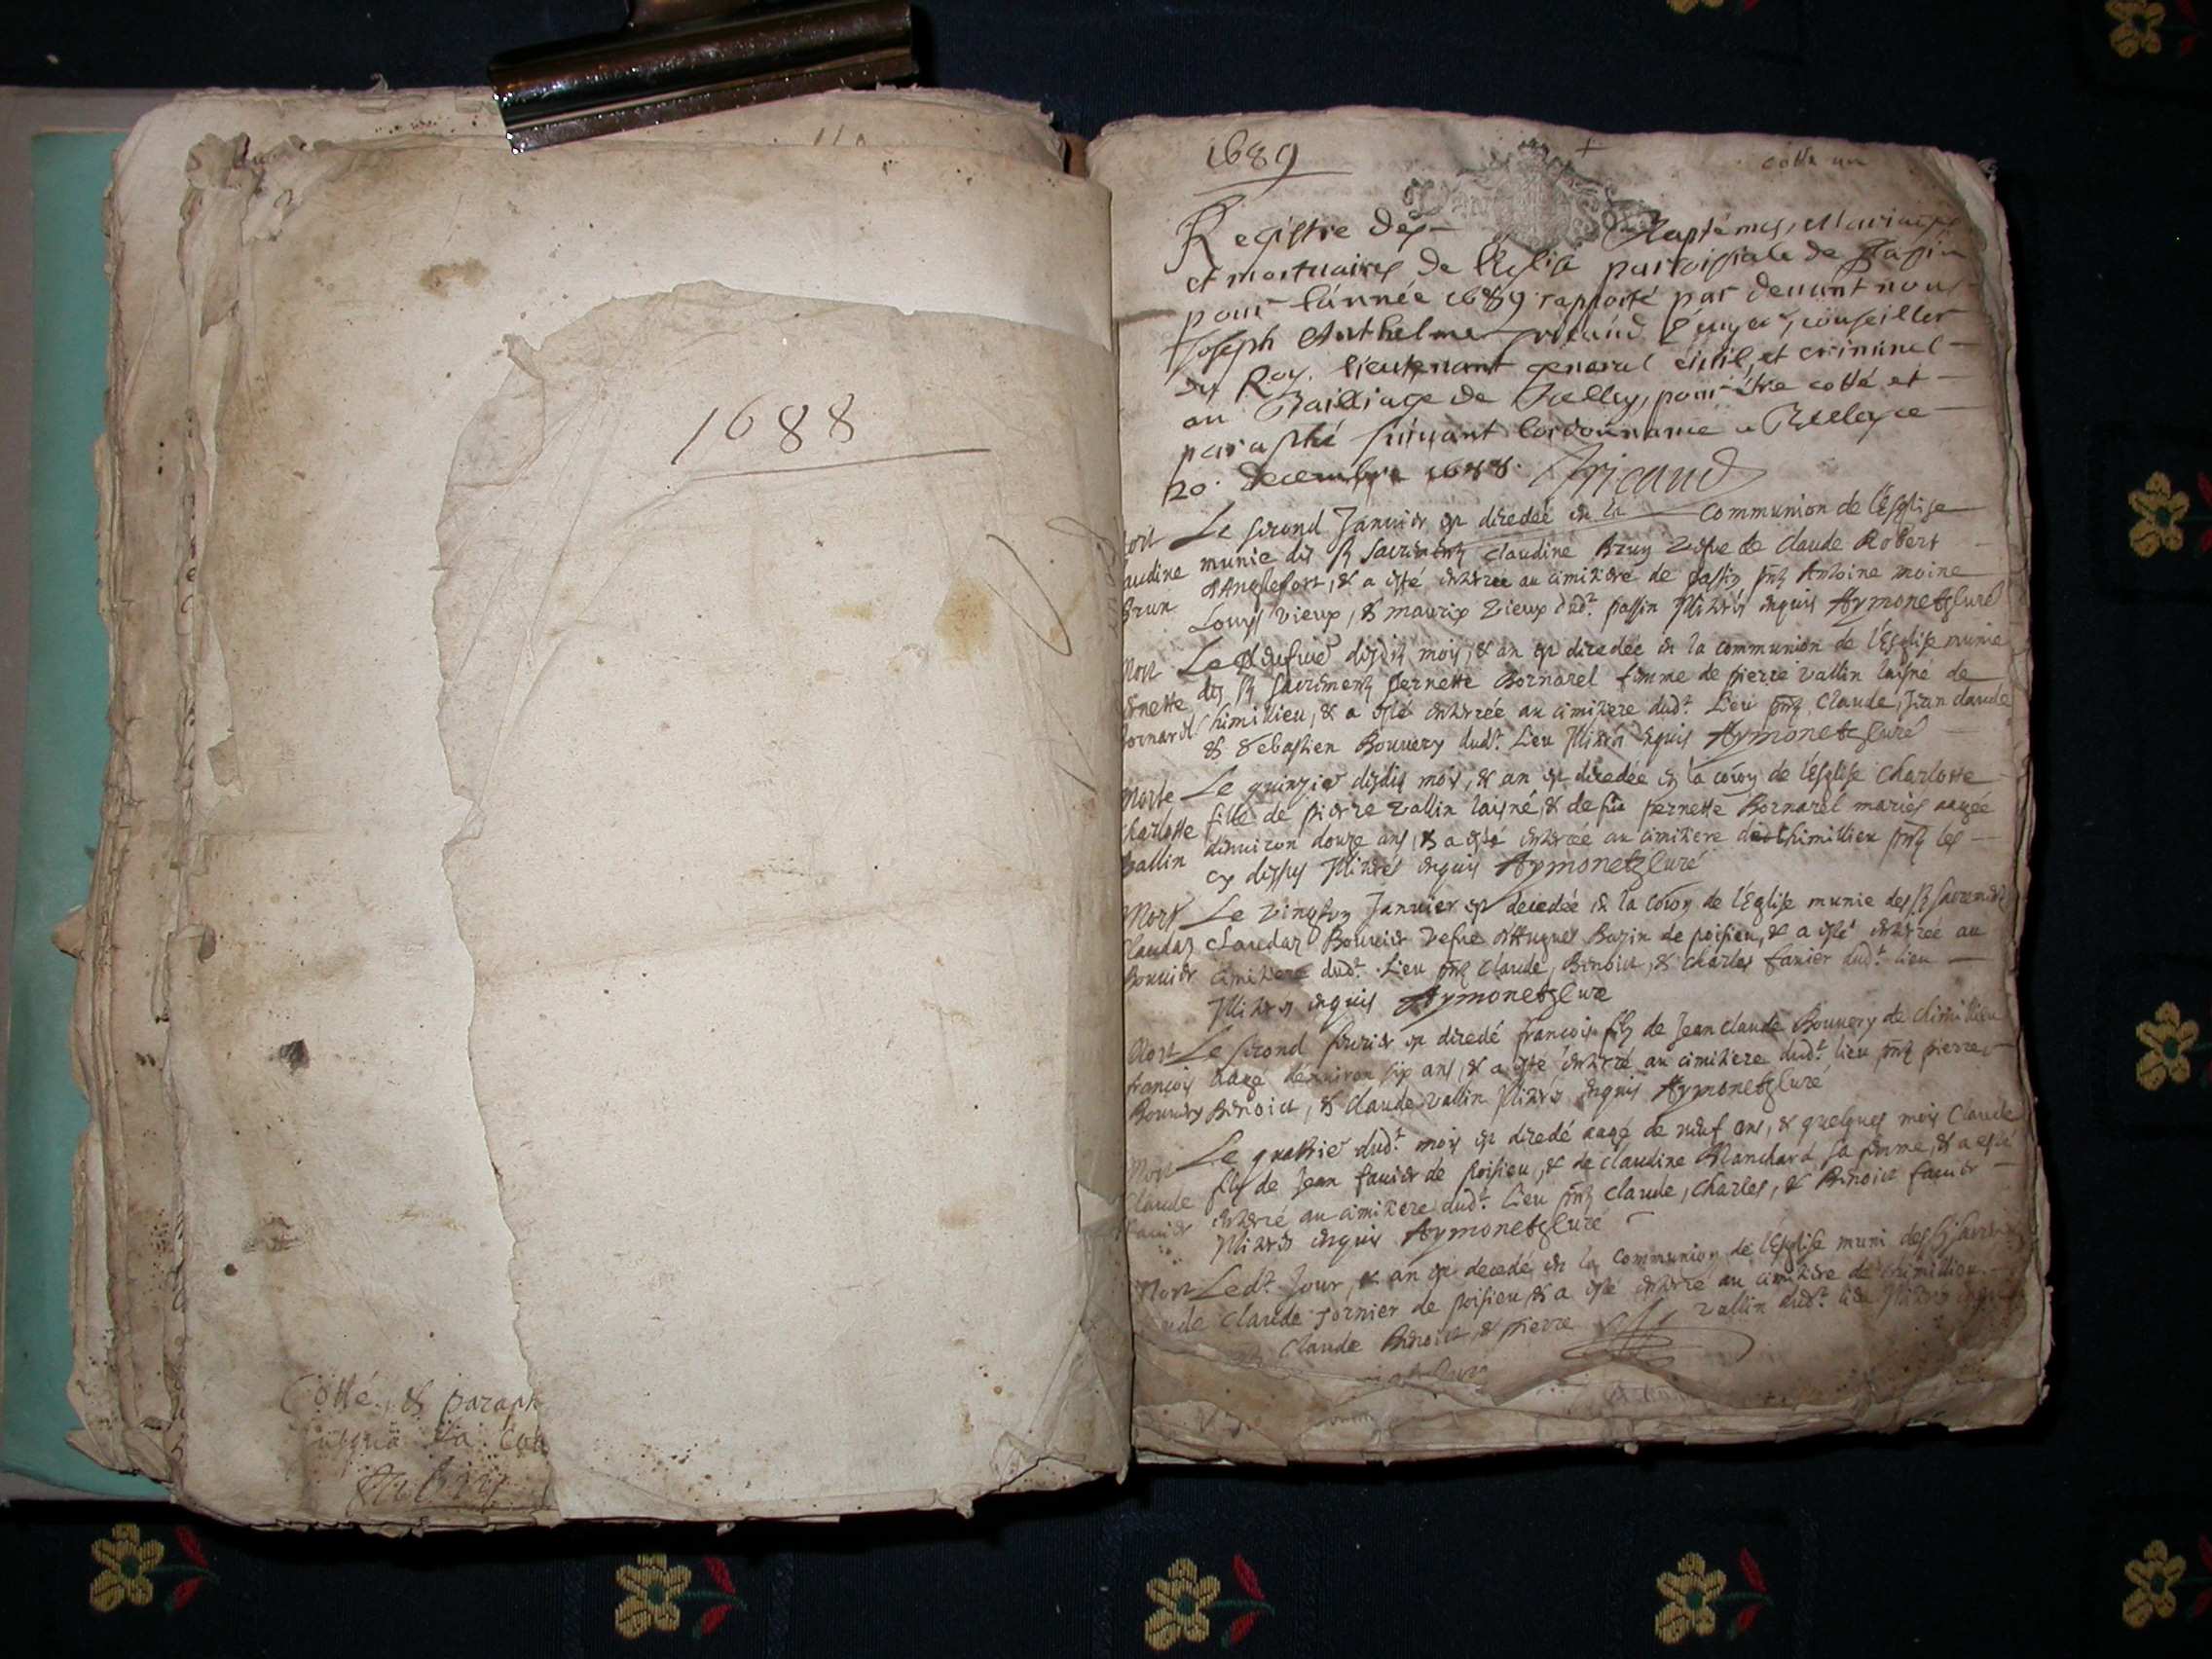 1688
Cotté & paraph
jusqua la
1689
cotté un
Registre des Baptêmes, Mariages
et mortuaires de l'Eglise parroissiale de Passin
pour l'année 1689 rapporté par devant nous
Joseph Anthelme Tricaud Ecuyer, conseiller
du Roy, lieutenant general civil, et criminel
au Bailliage de Belley, pour être cotté et
paraphé suivant l'ordonnance a Belley ce
20 decembre 1688. Tricaud
Mort Le second Janvier est decedée en la communion de l'Esglise
audine munie des SS sacrements Claudine Brun vefve de Claude Robert
Brun d'Anglefort, & a esté enterrée au cimitiere de passin pnts Antoine moine
Louys vieux, & maurix vieux dudt. passin illitérés enquis Aymonetz Curé
Mort Le neufvie desdits mois, & an est decedée en la communion de l'Esglise munie
ernette des SS sacrements pernette Bornarel femme de pierre vallin laisné de
bornarel Chimillieu, & a esté enterrée au cimitiere dudt. Lieu pnts Claude, Jean claude
& Sebastien Bouvery dudt. Lieu illitérés enquis Aymonetz Curé
Morte Le quinzie desdits mois, & an est decedée en la coion de l'Esglise Charlotte
Charlotte fille de pierre vallin laisné, & de fue pernette Bornarel mariés aagée
vallin d'environ douze ans, & a esté enterrée au cimitiere de Chimillieu pnts les
cy dessus illitérés enquis Aymonetz Curé
Mort Le Janvier est decedée en la coion de l'Eglise munie des SS sacrements
Claudaz Claudaz Bouvier vefve d'Hugues Bazin de poisieu, & a esté enterrée au
Bouvier cimitiere dudt. Lieu pnts Claude, Benoict, & Charles favier dudt. lieu
illiterés enquis Aymonetz Curé
Mort Le second fevrier est decedé francois fils de Jean claude Bouvery de Chimillieu
françois aagé d'environ six ans, & a esté enterré au cimitiere dudt. lieu pnts pierre
Bouvery Benoict, & Claude vallin illitérés enquis Aymonetz Curé
Mort Le quattrie dudt. mois est decedé aagé de neuf ans, & quelques mois Claude
Claude fils de Jean favier de Poisieu, & de Claudine Blanchard sa femme, & a esté
favier enterré au cimitiere dudt. Lieu pnts Claude, Charles, & Benoict favier
illiterés enquis Aymonetz Curé
Mort Ledt. Jour, & an est decedé en la communion de l'Esglise muni des SS sacrements
ude Claude tornier de poisieu, & a esté enterré au cimitiere de Chimillieu
Claude Benoict, & pierre vallin dudt. lieu illitérés enquis